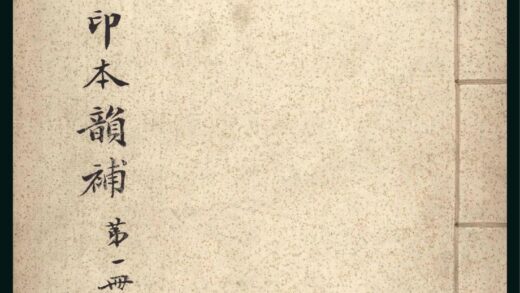 印本韻補第一冊